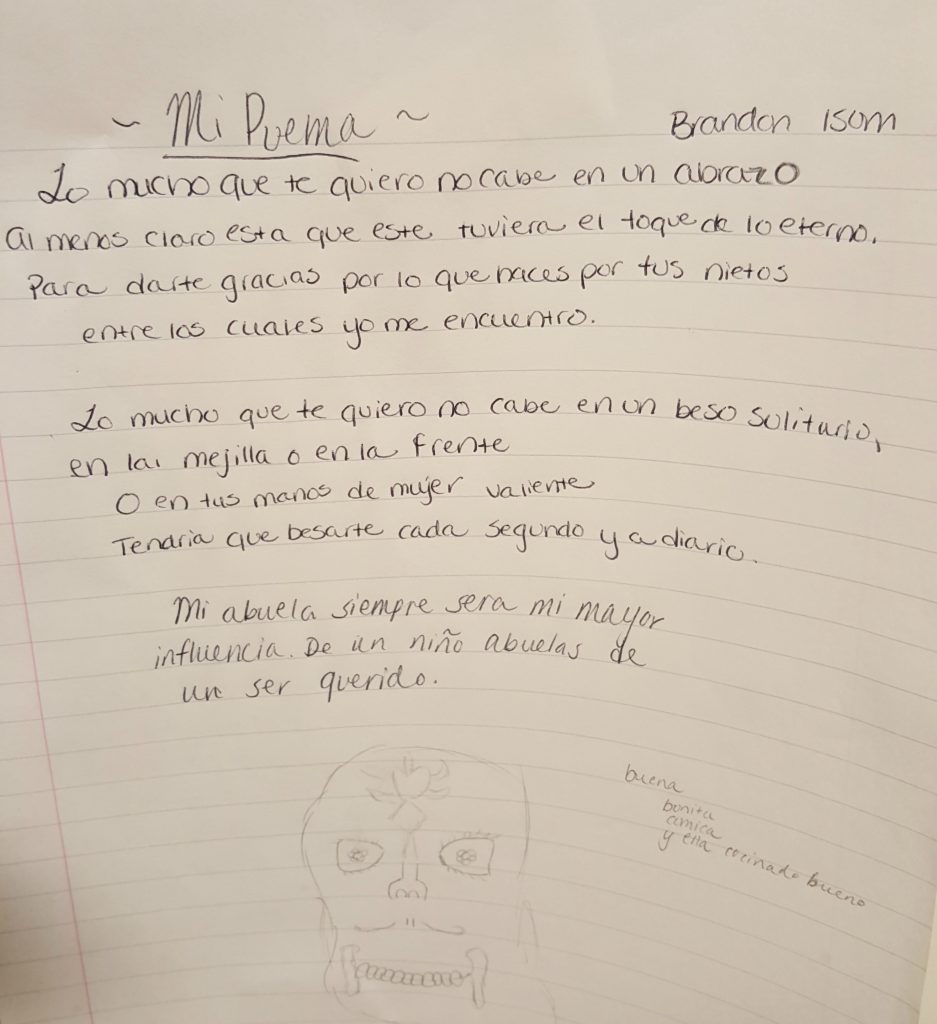 ~ Mi Poema ~
Brandon Isom
Lo mucho que te quiero no cabe en un abrazo
al menos claro esta que este tuviera el toque de lo eterno.
Para darte gracias por lo que haces por tus nietos
entre los cuales yo me encuentro.
Lo mucho que te quiero no cabe en un beso solitario,
en la mejilla o en la frente
O en tus manos de mujer valiente
Tendria que besarte cada segundo y a diario.
Mi abuela siempre sera mi mayor
influencia. De un niño abuelas de
un ser querido.
buena
bonita
amica
y ella cocinado bueno